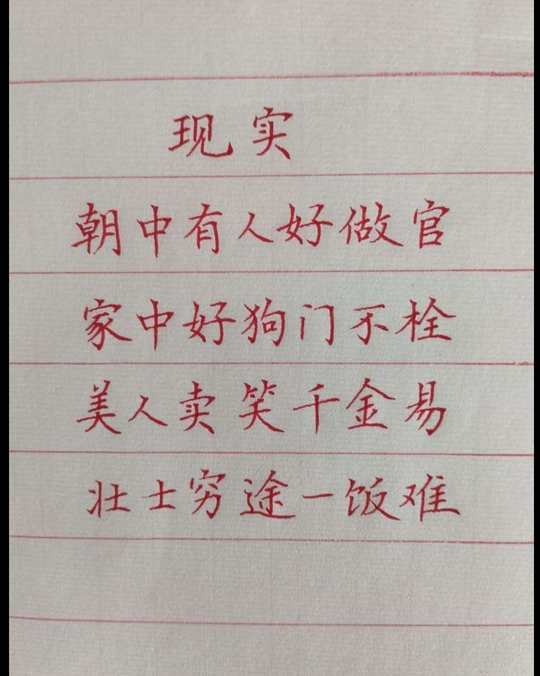 现实
朝中有人好做官
家中好狗门不栓
美人卖笑千金易
壮士穷途一饭难